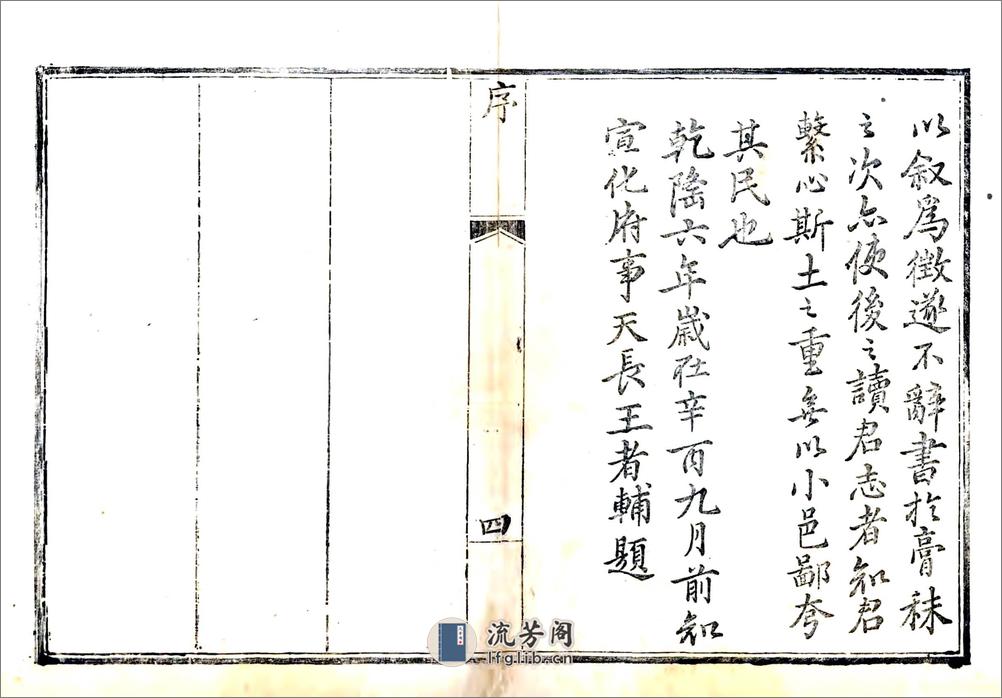 以叙為徵遂不辭書於膏秣
之次亦使後之讀君志者知君
繫心斯土之重無以小邑鄙夸
其民也
乾隆六年歲在辛酉九月前知
宣化府事天長王者輔題
序
四
流芳阁
lfglib.cn